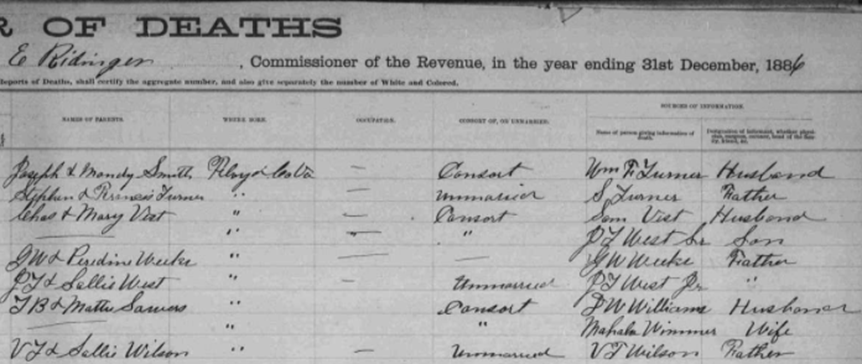 R OF DEATHS
E Ridinger, Commissioner of the Revenue, in the year ending 31st December, 1886
Reports of Deaths, shall certify the aggregate number, and also give separately the number of White and Colored.
SOURCES OF INFORMATION.
NAMES OF PARENTS. WHERE BORN. OCCUPATION. CONSORT OF, OR UNMARRIED. Name of person giving information of death.
Joseph & Mandy Smith Floyd Co Va — Consort Wm F Turner Husband
Stephen & Turner " — Unmarried S Turner Father
Chas & Mary Vest " — Consort Sam Vest Husband
— " — " P T West Sr Son
J W & Weeks " — — J W Weeks Father
P T & Sallie West " — Unmarried P T West Jr "
T B & Mattie Sowers " Consort D W Williams Husband
— " " Mahala Wimmer Wife
V T & Sallie Wilson " — Unmarried V T Wilson Father